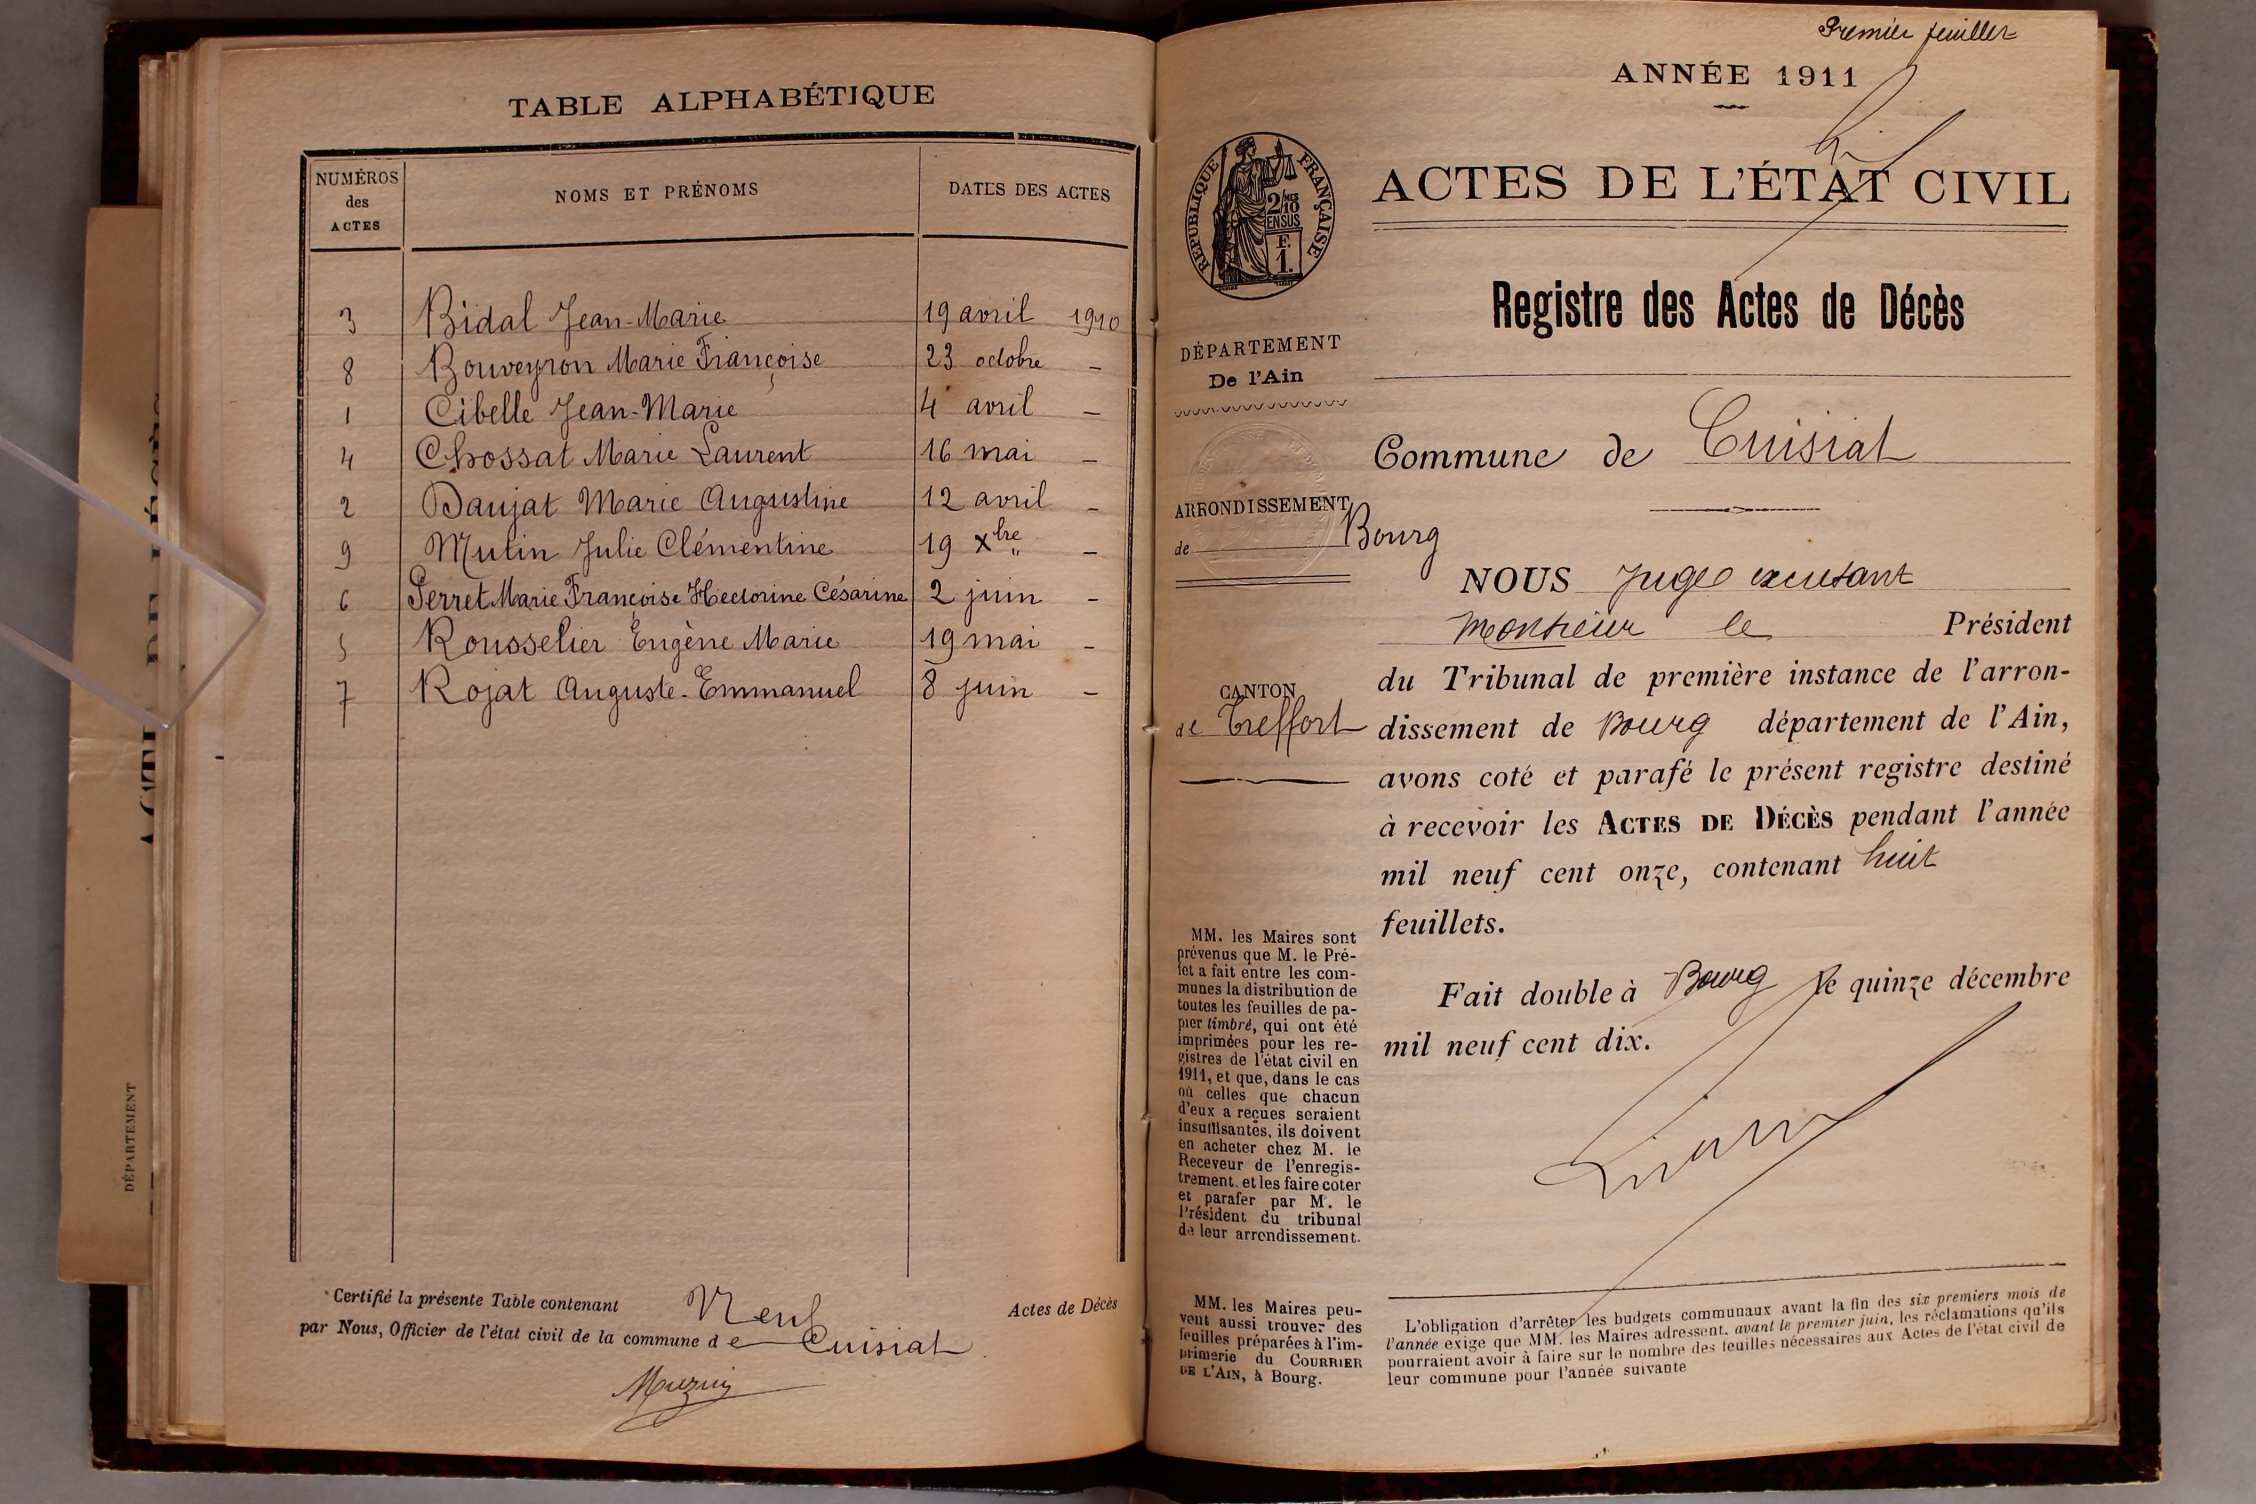 TABLE ALPHABÉTIQUE
NUMÉROS des ACTES
NOMS ET PRÉNOMS
DATES DES ACTES
3 Bidal Jean-Marie 19 avril 1910
8 Bouveyron Marie Françoise 23 octobre –
1 Cibelle Jean-Marie 4 avril –
4 Chossat Marie Laurent 16 mai –
2 Daujat Marie Augustine 12 avril –
9 Mutin Julie Clémentine 19 Xbre –
6 Perret Marie Françoise Hectorine Césarine 2 juin –
5 Rousselier Eugène Marie 19 mai –
7 Rojat Auguste-Emmanuel 8 juin –
Certifié la présente Table contenant Neuf Actes de Décès
par Nous, Officier de l'état civil de la commune de Cuisiat
DÉPARTEMENT
Premier feuillet
ANNÉE 1911
ACTES DE L'ÉTAT CIVIL
RÉPUBLIQUE FRANÇAISE
2/10 MES
EN SUS
F.
1.
Registre des Actes de Décès
DÉPARTEMENT
De l'Ain
Commune de Cuisiat
ARRONDISSEMENT
de Bourg
CANTON
de Treffort
NOUS Juge excusant
Monsieur le Président
du Tribunal de première instance de l'arron-
dissement de Bourg département de l'Ain,
avons coté et parafé le présent registre destiné
à recevoir les ACTES DE DÉCÈS pendant l'année
mil neuf cent onze, contenant huit
feuillets.
Fait double à Bourg le quinze décembre
mil neuf cent dix.
MM. les Maires sont
prévenus que M. le Pré-
fet a fait entre les com-
munes la distribution de
toutes les feuilles de pa-
pier timbré, qui ont été
imprimées pour les re-
gistres de l'état civil en
1911, et que, dans le cas
où celles que chacun
d'eux a reçues seraient
insuffisantes, ils doivent
en acheter chez M. le
Receveur de l'enregis-
trement, et les faire coter
et parafer par M. le
Président du tribunal
de leur arrondissement.
MM. les Maires peu-
vent aussi trouver des
feuilles préparées à l'im-
primerie du COURRIER
DE L'AIN, à Bourg.
L'obligation d'arrêter les budgets communaux avant la fin des six premiers mois de
l'année exige que MM. les Maires adressent, avant le premier juin, les réclamations qu'ils
pourraient avoir à faire sur le nombre des feuilles nécessaires aux Actes de l'état civil de
leur commune pour l'année suivante